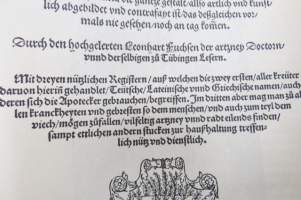 die gantze gestalt/ allso artlich vnd kunst-
lich abgebildet vnd contrafayt ist/ das desgleichen vor-
mals nie gesehen/ noch an tag kom̃en.
Durch den hochgelerten Leonhart Fuchsen der artzney Doctorn/
vnnd derselbigen zů Tübingen Lesern.
Mit dreyen nützlichen Registern/ auff welchen die zwey ersten/ aller kreüter
daruon hierin̄ gehandlet/ Teütsche/ Lateinische vnnd Griechische namen/ auch
deren sich die Apotecker gebrauchen/ begreiffen. Im dritten aber mag man zů al
len kranckheyten vnd gebresten so dem menschen/ vnd auch zum teyl dem
viech/ mögen zůfallen/ vilfeltig artzney vnnd radt eilends finden/
sampt etlichen andern stucken zur haußhaltung treffen-
lich nütz vnd dienstlich.